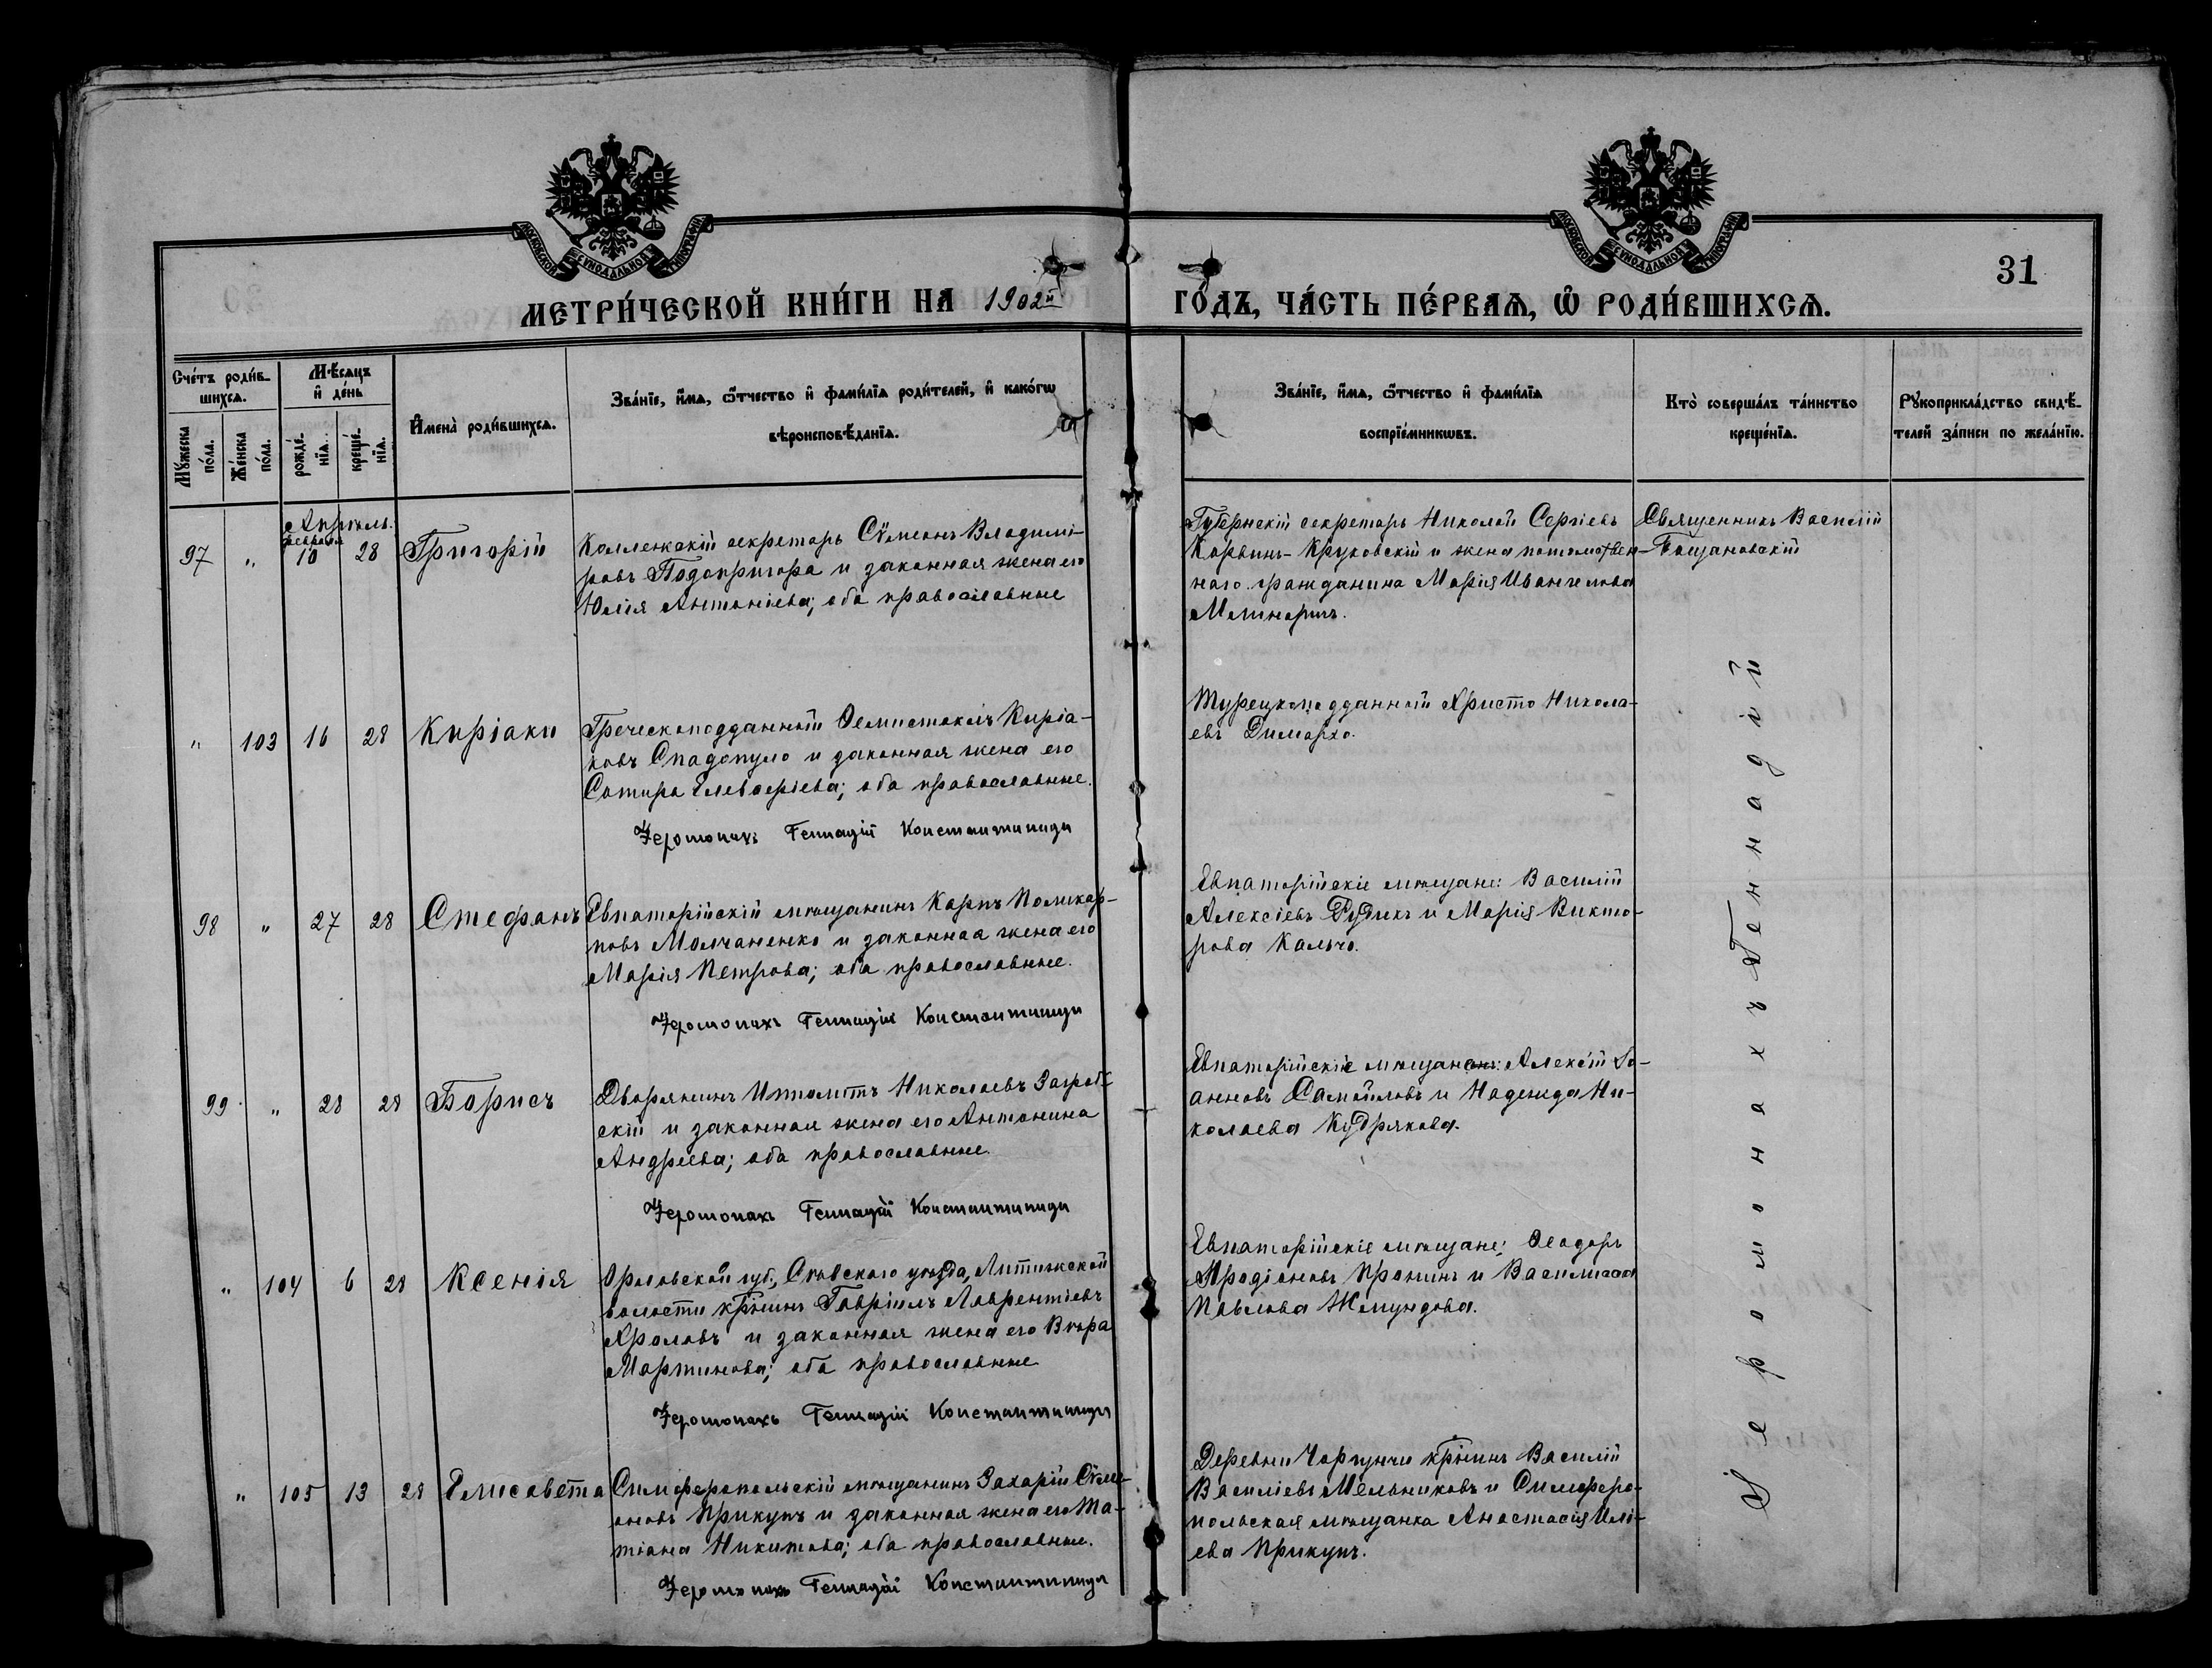 МОСКОВСКОЙ СѴНОДАЛЬНОЙ ТИПОГРАФІИ
МОСКОВСКОЙ СѴНОДАЛЬНОЙ ТИПОГРАФІИ
31
МЕТРИ́ЧЕСКОЙ КНИ́ГИ НА 1902й ГО́ДЪ, ЧА́СТЬ ПЕ́РВАѦ, Ѽ РОДИ́ВШИХСѦ.
Сче́тъ роди́вшихсѧ.
Мꙋ́жеска по́ла.
Же́нска по́ла.
Мѣ́сѧцъ и҆ де́нь
рожде́нїѧ.
креще́нїѧ.
И҆мена̀ роди́вшихсѧ.
Зва́нїе, и҆́мѧ, ѻ҆́тчество и҆ фами́лїѧ роди́телей, и҆ како́гѡ
вѣроисповѣ́данїѧ.
Зва́нїе, и҆́мѧ, ѻ҆́тчество и҆ фами́лїѧ
воспрїе́мникѡвъ.
Кто̀ соверша́лъ та́инство
креще́нїѧ.
Рꙋкоприкла́дство свидѣ́-
телей за́писи по жела́нїю.
Апрѣль.
февраля
97 " 10 28 Григорій
Коллежскій секретарь Сѵмеонъ Владимі-
ровъ Подопригора и законная жена его
Юлія Антоніева; оба православные
Губернскій секретарь Николай Сергіевъ
Корвинъ-Круковскій и жена потомствен-
наго гражданина Марія Ивангелова
Священникъ Василій
" 103 16 28 Киріаки
Греческоподданный Ѳемистоклъ Киріа-
ковъ Спадопуло и законная жена его
Сотира Елевѳеріева; оба православные.
Іеромонахъ Геннадій Константиниди
Турецкоподданный Христо Никола-
евъ Димархо.
98 " 27 28 Стефанъ
Евпаторійскій мѣщанинъ Карпъ Поликар-
повъ Молчаненко и законная жена его
Марія Петрова; оба православные.
Іеромонахъ Геннадій Константиниди
Евпаторійскіе мѣщане: Василій
Алексіевъ Рудикъ и Марія Викто-
рова
99 " 28 28 Борисъ
Дворянинъ Ипполитъ Николаевъ
скій и законная жена его Антонина
Андреева; оба православные.
Іеромонахъ Геннадій Константиниди
Евпаторійскіе мѣщане: Алексій Іо-
анновъ Самойловъ и Надежда Ни-
колаева Кудрякова.
" 104 6 28 Ксенія
Орловской губ., Сѣвскаго уѣзда, Литижской
волости кр̃нинъ Гавріилъ Лаврентіевъ
Хроловъ и законная жена его Вѣра
Мартинова; оба православные
Іеромонахъ Геннадій Константиниди
Евпаторійскіе мѣщане: Ѳеодоръ
Иродіоновъ Пронинъ и Василисса
Павлова Жмундова.
" 105 13 28 Елисавета
Симферопольскій мѣщанинъ Захарій Сѵме-
оновъ Прикупъ и законная жена его Та-
тіана Никитова; оба православные.
Іеромонахъ Геннадій Константиниди
Деревни Чоргунчи кр̃нинъ Василій
Василіевъ Мельниковъ и Симферо-
польская мѣщанка Анастасія Илі-
ева Прикупъ.
Іеромонахъ Геннадій